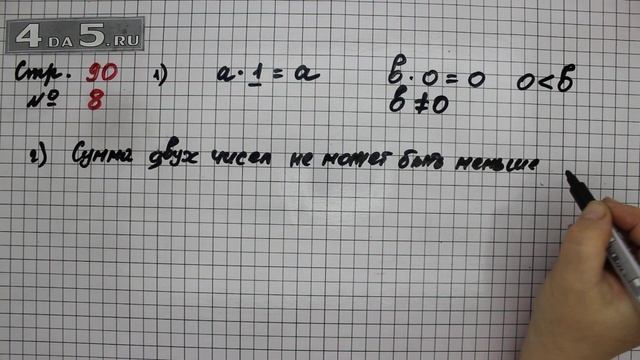 4DA5.RU
Стр. 90 1) a · 1 = a в · 0 = 0 0 < в
№ 8 в ≠ 0
2) Сумма двух чисел не может быть меньше